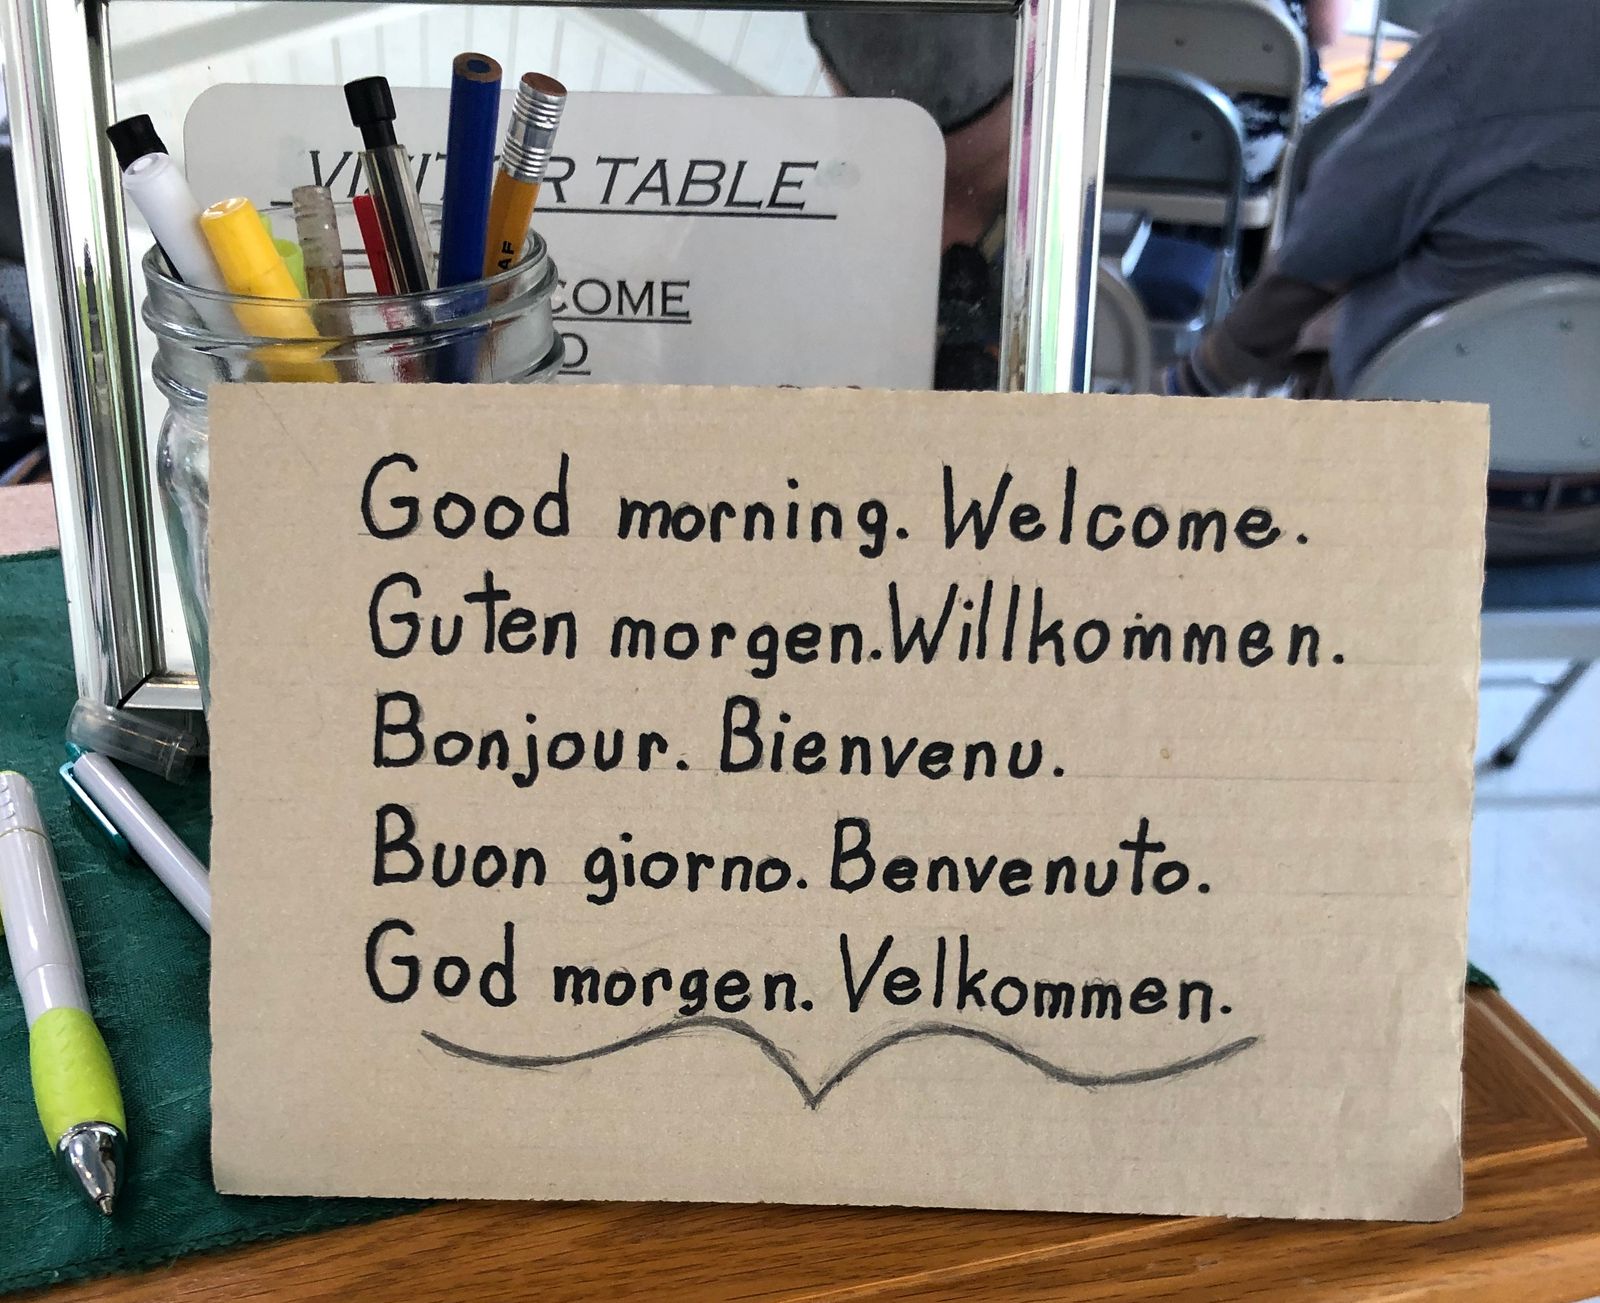 TABLE
Good morning. Welcome.
Guten morgen. Willkommen.
Bonjour. Bienvenu.
Buon giorno. Benvenuto.
God morgen. Velkommen.